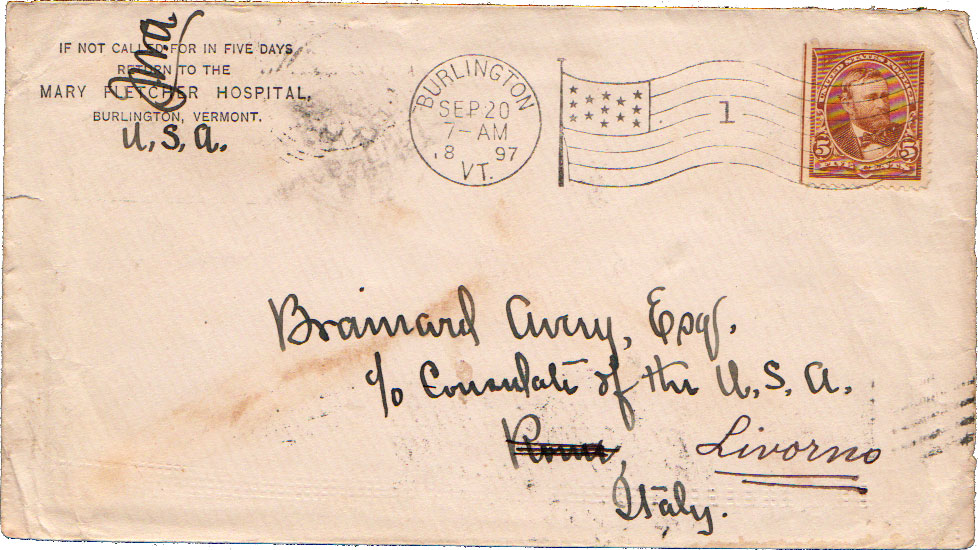 IF NOT CALLED FOR IN FIVE DAYS
RETURN TO THE
MARY FLETCHER HOSPITAL,
BURLINGTON, VERMONT.
U.S.A.
BURLINGTON
SEP 20
7-AM
8 97
VT.
1
UNITED STATES POSTAGE
5 5
FIVE CENTS
Brainard Avery, Esq.
c/o Consulate of the U.S.A.
Rome, Livorno
Italy.